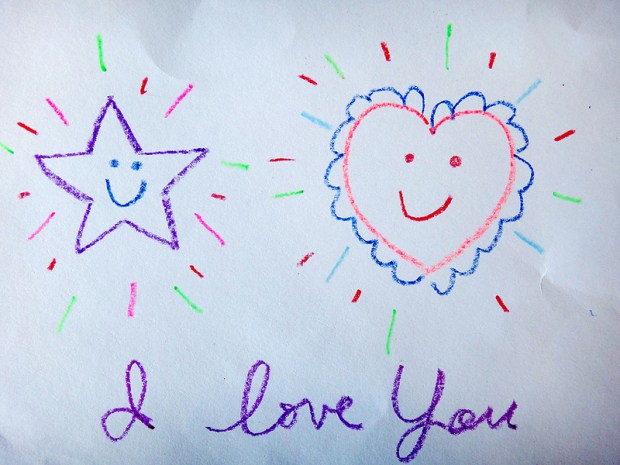 I love You